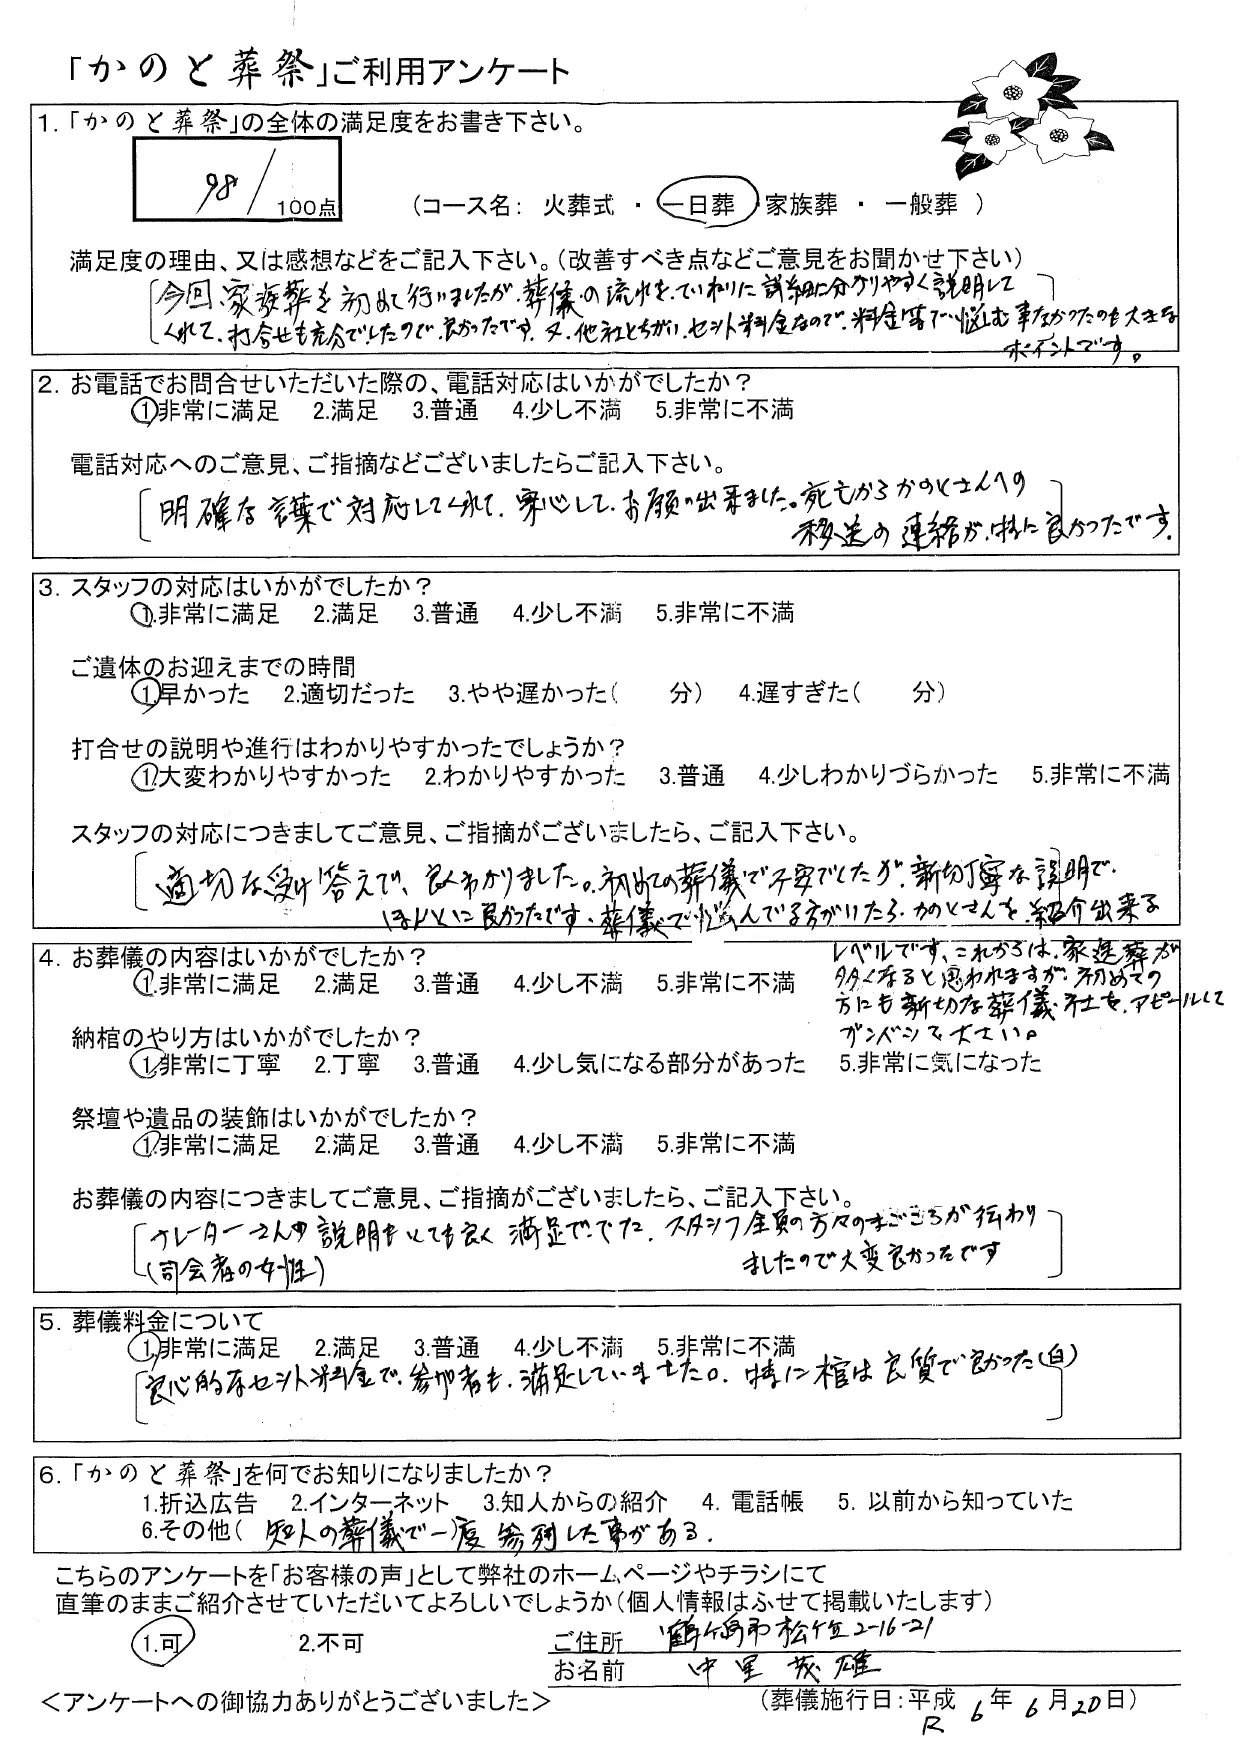 「かのと葬祭」ご利用アンケート
1. 「かのと葬祭」の全体の満足度をお書き下さい。
98/100点 (コース名： 火葬式 ・ 一日葬 ・ 家族葬 ・ 一般葬 )
満足度の理由、又は感想などをご記入下さい。(改善すべき点などご意見をお聞かせ下さい)
今回、家族葬を初めて行いましたが、葬儀の流れを、ていねいに詳細に分かりやすく説明して
くれて、打合せも充分でしたので、良かったです。又、他社とちがい、セット料金なので、料金等で悩む事なかったのも大きな
ポイントです。
2. お電話でお問合せいただいた際の、電話対応はいかがでしたか？
1.非常に満足 2.満足 3.普通 4.少し不満 5.非常に不満
電話対応へのご意見、ご指摘などございましたらご記入下さい。
明確な言葉で対応してくれて、安心して、お願い出来ました。死亡からかのとさんへの
移送の連絡が、特に良かったです。
3. スタッフの対応はいかがでしたか？
1.非常に満足 2.満足 3.普通 4.少し不満 5.非常に不満
ご遺体のお迎えまでの時間
1.早かった 2.適切だった 3.やや遅かった( 分) 4.遅すぎた( 分)
打合せの説明や進行はわかりやすかったでしょうか？
1.大変わかりやすかった 2.わかりやすかった 3.普通 4.少しわかりづらかった 5.非常に不満
スタッフの対応につきましてご意見、ご指摘がございましたら、ご記入下さい。
適切な受け答えで、良くわかりました。初めての葬儀で不安でしたが、新切丁寧な説明で、
ほんとに良かったです。葬儀で悩んでる方がいたら、かのとさんを、紹介出来る
レベルです。これからは、家送葬が
多くなると思われますが、初めての
方にも新切な葬儀社を、アピールして
ガンバンて下さい。
4. お葬儀の内容はいかがでしたか？
1.非常に満足 2.満足 3.普通 4.少し不満 5.非常に不満
納棺のやり方はいかがでしたか？
1.非常に丁寧 2.丁寧 3.普通 4.少し気になる部分があった 5.非常に気になった
祭壇や遺品の装飾はいかがでしたか？
1.非常に満足 2.満足 3.普通 4.少し不満 5.非常に不満
お葬儀の内容につきましてご意見、ご指摘がございましたら、ご記入下さい。
ナレーターさんの説明もとても良く満足でした。スタッフ全員の方々のまごころが伝わり
(司会者の女性) ましたので大変良かったです
5. 葬儀料金について
1.非常に満足 2.満足 3.普通 4.少し不満 5.非常に不満
良心的なセット料金で、参加者も、満足していました。特に棺は良質で良かった(白)
6. 「かのと葬祭」を何でお知りになりましたか？
1.折込広告 2.インターネット 3.知人からの紹介 4. 電話帳 5. 以前から知っていた
6.その他( 知人の葬儀で一度参列した事がある.
こちらのアンケートを「お客様の声」として弊社のホームページやチラシにて
直筆のままご紹介させていただいてよろしいでしょうか(個人情報はふせて掲載いたします)
1.可 2.不可
ご住所 鶴ヶ島市松ヶ丘2-16-21
お名前 中里 茂雄
＜アンケートへの御協力ありがとうございました＞ (葬儀施行日：平成 6年 6月20日)
R